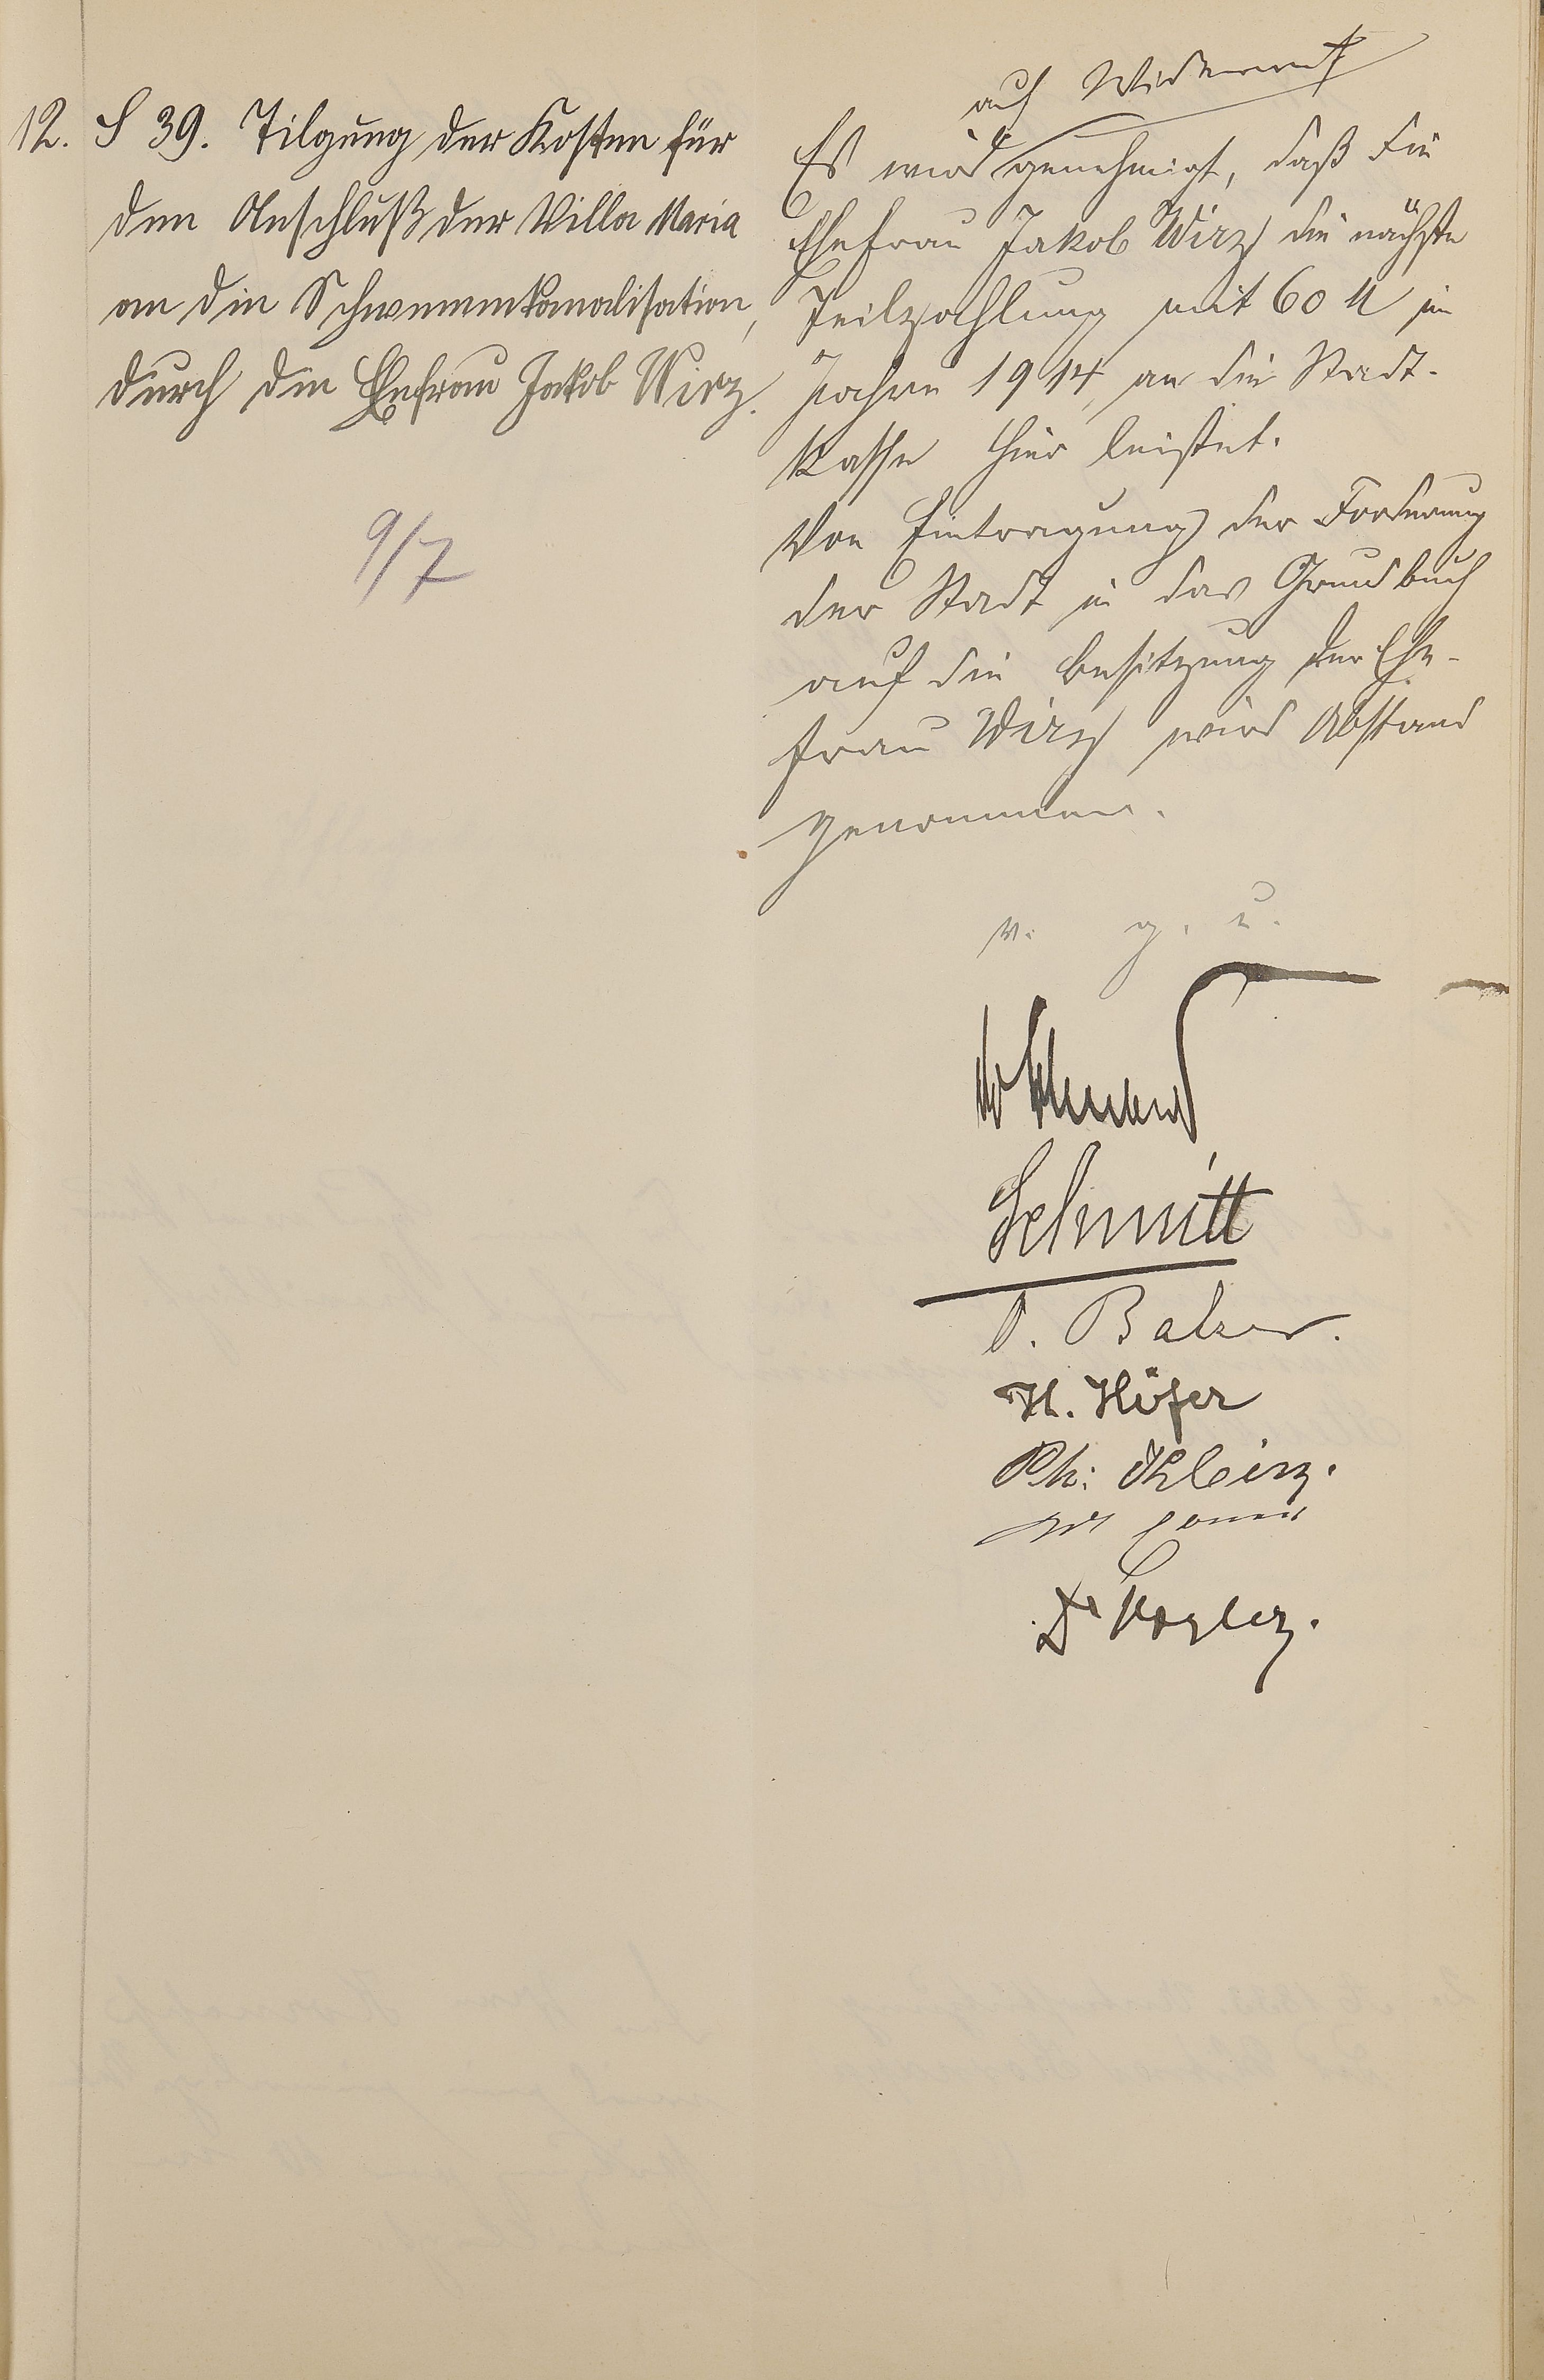 12. § 39. Tilgung der Kosten für
den Anschluß der Villa Maria
an die Schwemmkanalisation,
durch die Ehefrau Jakob Wirz.
9/7
auf Widerruf
Es wird genehmigt, daß die
Ehefrau Jakob Wirz die nächste
Teilzahlung mit 60 M im
Jahre 1914, an die Stadt-
kasse hier leistet.
Von Eintragung der Forderung
der Stadt in das Grundbuch
auf die Besitzung der Ehe-
frau Wirz wird Abstand
genommen.
v. g. u.
Schmitt
Balzer.
H. Höfer
Ph: Klein.
Dr Vogler.